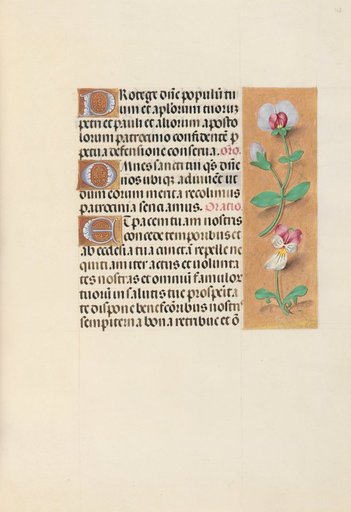 Rotege dn̄e populū tu
um et ap̄lorum tuorum
petri et pauli et aliorum aposto
lorum patrocinio confidentē p̄
petua defensione conserua. oro.
Omnes sancti tui q̄s dn̄e
nos ubiq̄ adiuuēt ut
dum eorum merita recolimus
patrocinia senciamus. Oratio.
Et pacem tuam nostris
concede temporibus et
ab ecclesia tua cunctā repelle ne
quitiam iter actus et uolunta
tes nostras et omniū famulor
tuorū in salutis tue prospeita
te dispone benefcōribus nostris
sempiterna bona retribue et ō